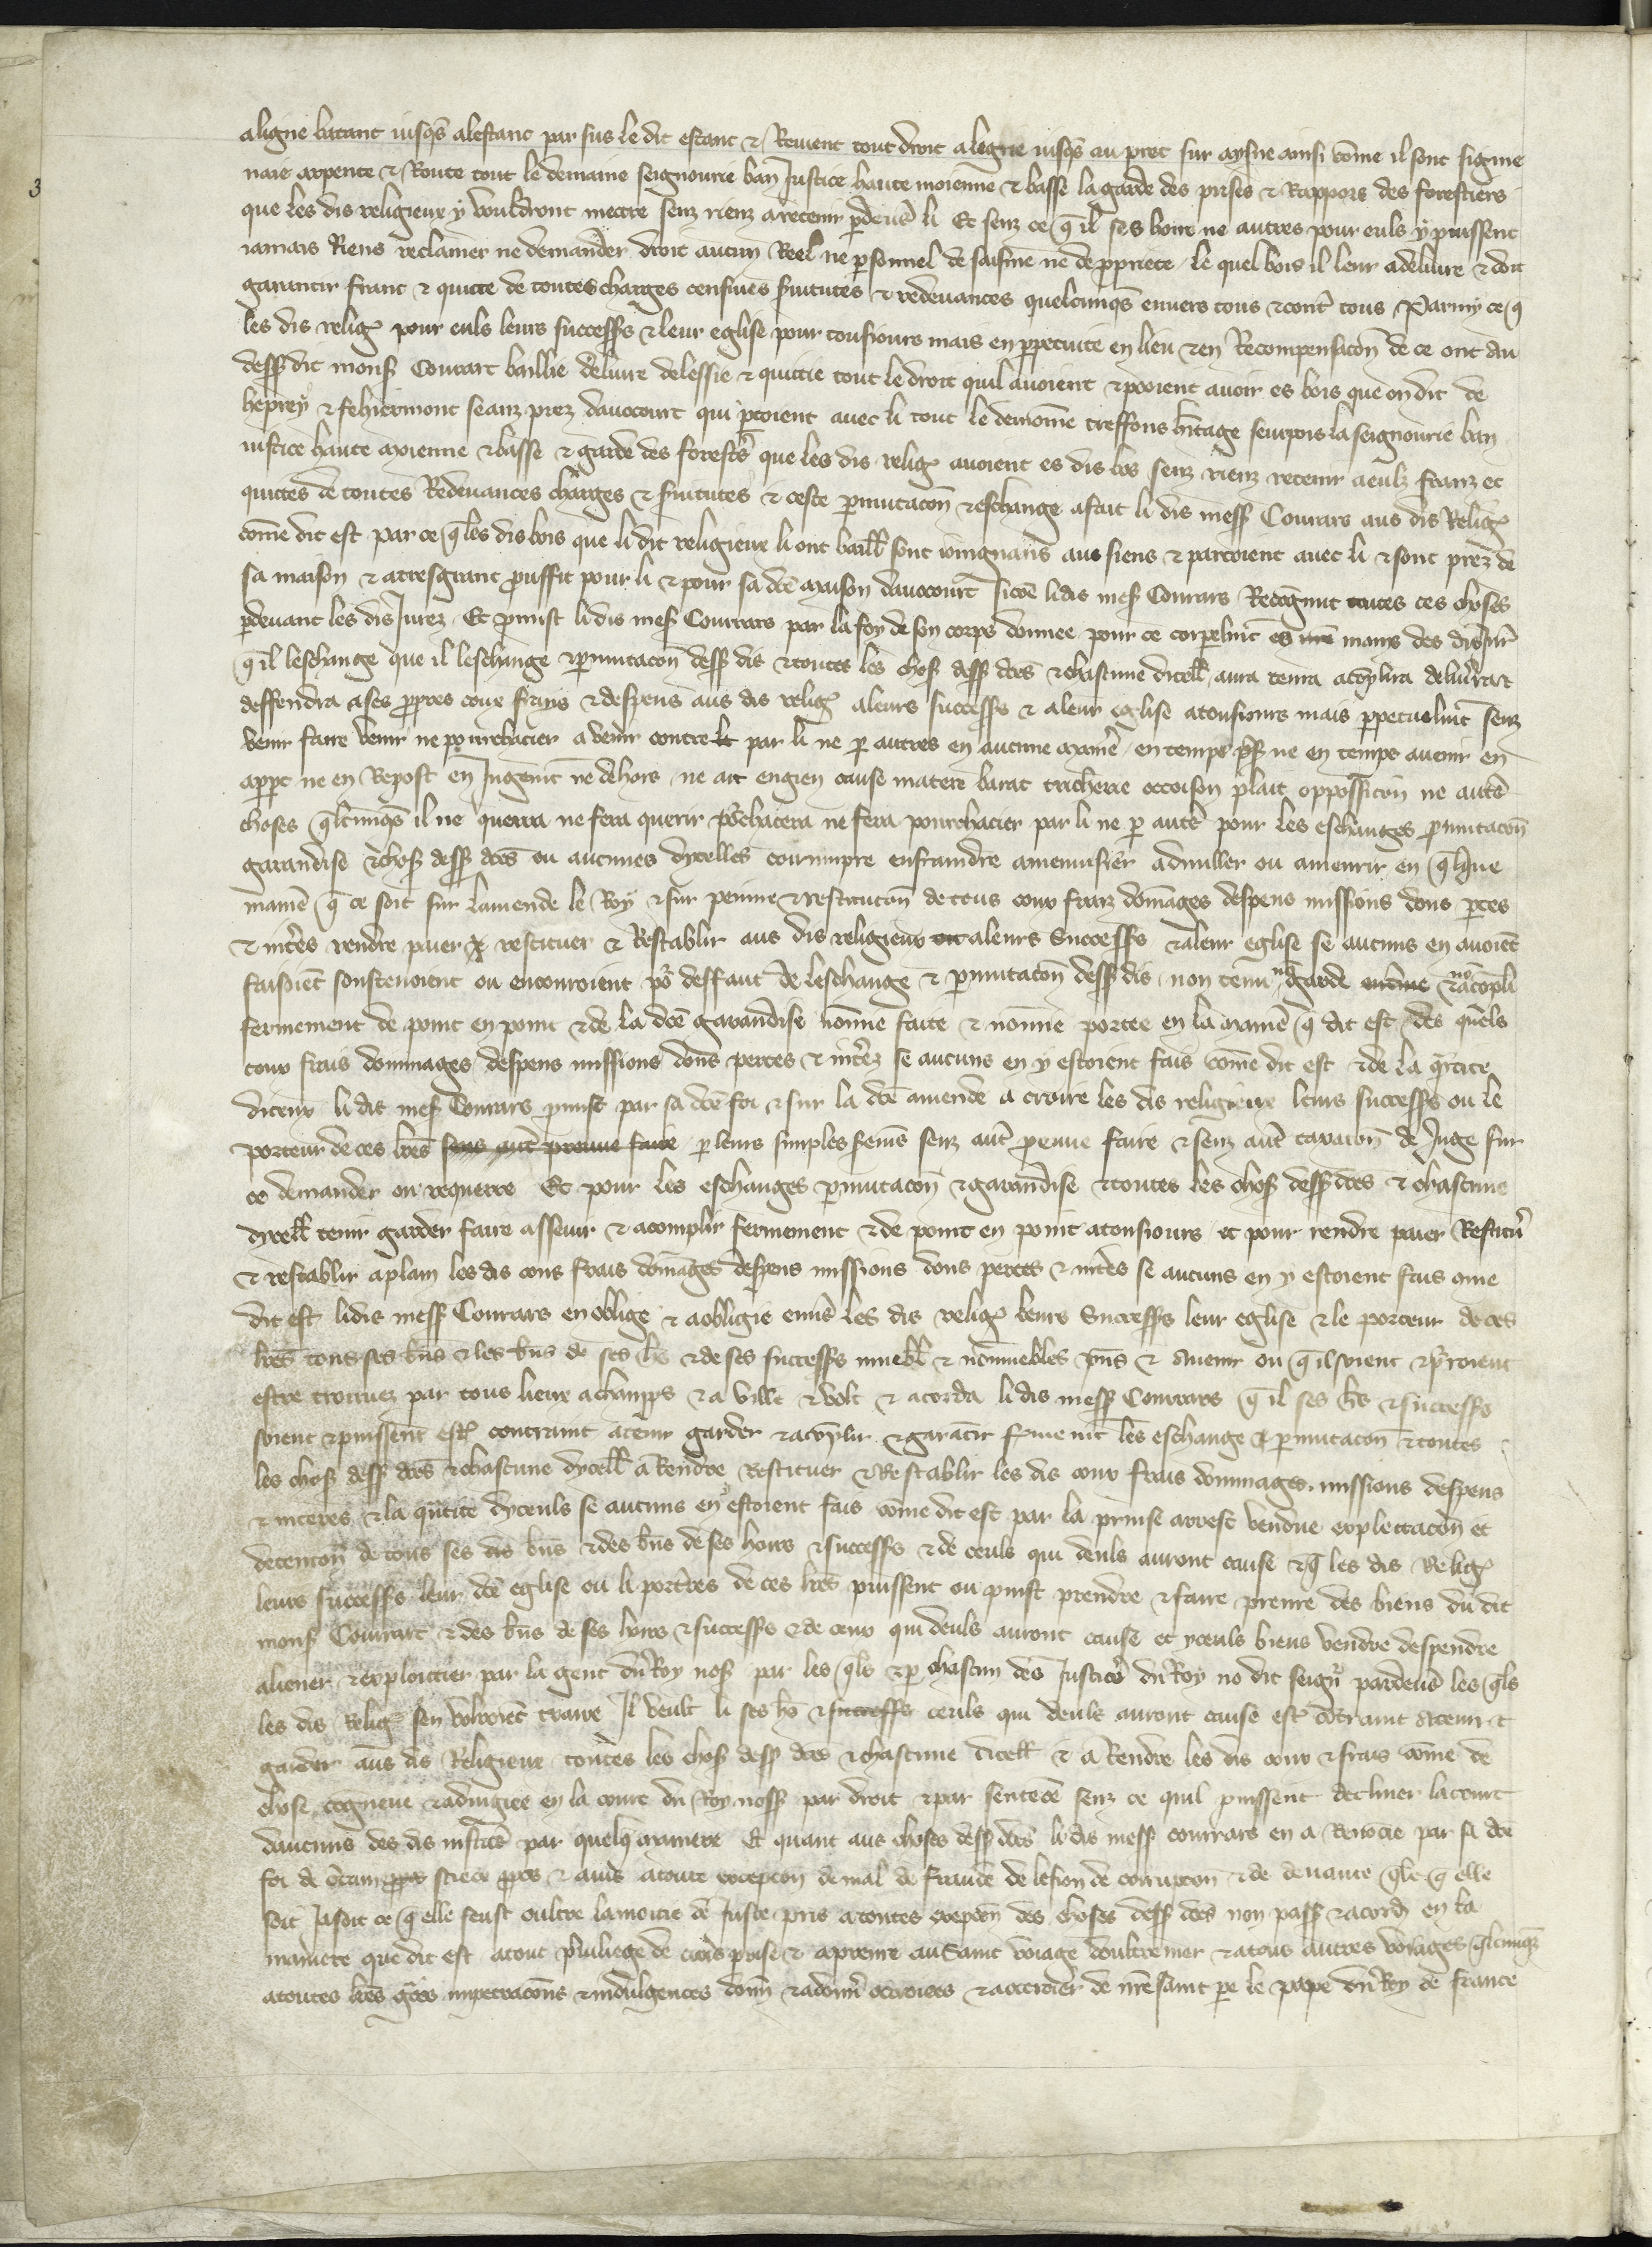 3
aligne batant iusqs alestanc par sus le dit estanc & Revient tout droit a legne iusqs au pret sur aysne ainsi come il sont signie
naie arpente & Route tout le demaine seignourie ban Justice haute moienne & basse la garde des prises & Rappors des forestiers
que les dis religieux y vouldront mettre senz rienz a retenir pdeuers li Et senz ce q il ses hoirs ne autres pour euls y puissent
iamais Riens reclamer ne demander droit aucun Reel ne psonnel de saisine ne de ppriete le quel bois il leur a deliure & doit
garantir franc & quitte de toutes charges censiues seruitutes & redeuances quelcunqs enuers tous & contr tous Parmy ce q
les dis relig pour euls leurs successs & leur eglise pour tousiours mais en ppetuite en lieu & en Recompensacon de ce ont au
dess dit mons Conrart baillie deliure delessie & quittie tout le droit quil auoient & pooient auoir es bois que on dit de
heprey & fehiermont seanz prez dauocourt qui ptoient auec li tout le demoine treffons hitage seurpois la seignourie ban
iustice haute moienne & basse & garde des forests que les dis relig auoient es dis bos senz rienz retenir a eulz franz et
quittes de toutes Redeuances charges & suitutes & ceste pmutacon & eschange a fait li dis mess Conrars aus dis Relig
come dit est par ce q les dis bois que li dit religieux li ont baill sont ioingnans aus siens & partoient auec li & sont prez de
sa maison & a tresgrant prouffit pour li & pour sa dce maison dauocourt Sicoe li dis mes Conrars Recognut toutes ces choses
pdeuant les dis Jurez Et pmist li dis mes Conrrars par la foy de son corps donnee pour ce corpelmt es mains des dis Jur
q il leschange que il leschange & pmutacon dess dis & toutes les chos dess dces & chascune dicell aura tenra acoplira deliurra &
deffendra a ses ppres coux frays & despens aus dis relig a leurs successs & a leur eglise a tousiours mais ppetuelmt senz
venir faire venir ne pourchacier a venir contre par li ne p autres en aucune maniere en temps ps ne en temps auenir en
appt ne en Repost en Jugemt ne dehors ne art engien cause matere barat tricherie occoison plait opposicion ne autre
choses qlcunqs il ne querra ne fera querir pochacera ne fera pourchacier par li ne p autre pour les eschanges pmutacon
garandise & chos dess dces ou aucunes dycelles corrumpre enfraindre amenuisier adnuller ou amenrir en qlque
maniere q ce soit sur lamende le Roy & sur peinne & restitucon de tous coux fraiz domages despens missions dons ptes
& interes rendre paier restituer & Restablir aus dis religieux a leurs Successs & a leur eglise se aucuns en auoient
faisoiet soustenoient ou encouroient po deffaut de leschange & pmutacon dess dis non tenu n garde & no acopli
fermement de point en point & de la dce garandise nonnie faite & nonnie portee en la maniere q dit est des quels
coux frais dommages despens missions dons pertes & interez se aucuns en y estoient fais come dit est & de la qntite
diceux li dit mes Conrars pmist par sa dce foi & sur la dce amende a croire les dis religieux leurs successs ou le
porteur de ces lres sens autre preuue faire p leurs simples semens senz autre preuue faire & senz autre taxacion de Juge sur
ce demander ou requerre Et pour les eschanges pmutacon & garandise & toutes les chos dess dces & chascune
dycell tenir garder faire assouir & acomplir fermement & de point en point a tousiours et pour rendre paier Restitur
& restablir a plain les dis cous frais domages despens missions dons pertes & interes se aucuns en y estoient fais come
dit est li dis mess Conrars en oblige & a obligie enuers les dis relig leurs Successs leur eglise & le porteur de ces
lres tous ses biens & les biens de ses hoirs & de ses successs muebl & nommuebles pns & Auenir ou q il soient & porroient
estre trouuez par tous lieux a champs & a ville & volt & acorda li dis mess Conrrars q il ses hoirs & successs
soient & puissent estre contraint a tenir garder & acoplir & garantir fmemt les eschange & pmutacon & toutes
les chos dess dces & chascune dycell a Rendre Restituer & Restablir les dis coux frais dommages missions despens
& interes & la quatite dyceuls se aucuns en y estoient fais come dit est par la prinse arrest vendue explectacion et
detencon de tous ses dis biens & des biens de ses hoirs & successs & de ceuls qui deuls auront cause & q les dis Relig
leurs successs leur dce eglise ou li porteres de ces lres puissent ou puist prendre & faire prenre des biens du dit
mons Conrart & des biens de ses hoirs & successs & de ceux qui deuls auront cause et yceuls biens vendre despendre
aliener & exploictier par la gent du Roy nos par les qls & p chascun des Justices du Roy no dit seignr pardeuers les qls
les dis Relig sen volroiet traire Il veult li ses hoirs & successs ceuls qui deuls auront cause estre cotraint a tenir &
garder aus dis Religieux toutes les chos dess dces & chascune dicell & a Rendre les dis coux & frais come de
chose cogneue & adiugiee en la court du Roy noss par droit & par sentece senz ce quil puissent decliner la court
daucuns des dis iustices par quelq maniere Et quant aus choses dess dces li dis mess conrrars en a Renocie par sa dce
foi de & auis a toute excepcon de mal de fraude de lesion de corrupcon & de deuance qle q elle
soit Jasoit ce q elle feust oultre la moitie de Juste pris a toutes excepcon des choses dess dces non pass & acord en la
maniere que dit est a tout priuilege de crois prise & aprenre au Saint voiage doultremer & a tous autres voiages qlcunqz
a toutes lres gces impetracons & indulgences donn & adonner ottroiees & a ottroier de nre saint pe le pape du Roy de france